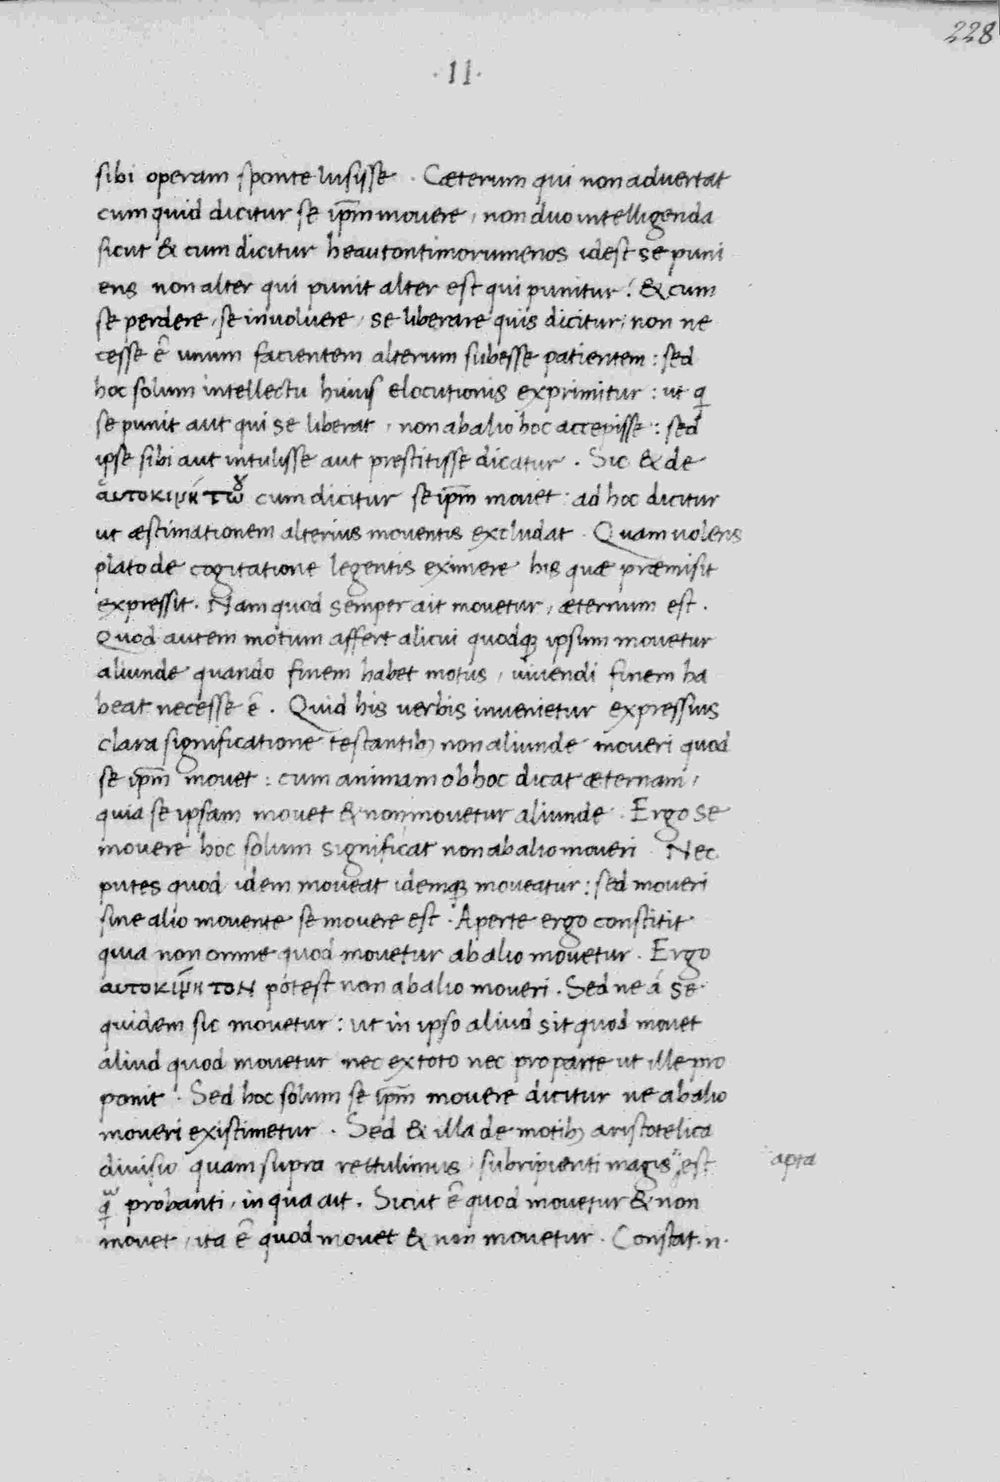 228
· II ·
sibi operam sponte lusisse . Cæterum qui non advertat
cum quid dicitur se ip̄m movere , non duo intelligenda
sicut & cum dicitur heautontimorumenos idest se puni
ens non alter qui punit alter est qui punitur : & cum
se perdere , se involuere , se liberare quis dicitur , non ne
cesse ē unum facientem alterum subesse patientem : sed
hoc solum intellectu huius elocutionis exprimitur : ut q
se punit aut qui se liberat , non ab alio hoc accepisse : sed
ipse sibi aut intulisse aut prestitisse dicatur . Sic & de
αυτοκινήτω cum dicitur se ip̄m movet : ad hoc dicitur
ut æstimationem alterius moventis excludat . Quam volens
plato de cogitatione legentis eximere his quæ præmisit
expressit . Nam quod semper ait movetur , æternum est .
Quod autem motum affert alicui quodq; ipsum movetur
aliunde quando finem habet motus , vivendi finem ha
beat necesse ē . Quid his verbis invenietur expressius
clara significatione testantib; non aliunde moveri quod
se ip̄m movet : cum animam ob hoc dicat æternam ,
quia se ipsam movet & non movetur aliunde . Ergo se
movere hoc solum significat non ab alio moveri . Nec
putes quod idem moveat idemq; moveatur : sed moveri
sine alio movente se movere est . Aperte ergo constitit
quia non omne quod movetur ab alio movetur . Ergo
αυτοκίνητον potest non ab alio moveri . Sed ne á se
quidem sic movetur : ut in ipso aliud sit quod movet
aliud quod movetur nec ex toto nec pro parte ut ille pro
ponit . Sed hoc solum se ip̄m movere dicitur ne ab alio
moveri existimetur . Sed & illa de motib; aristotelica
divisio quam supra rettulimus subripienti magis est apta
q probanti , in qua ait . Sicut ē quod movetur & non
movet , ita ē quod movet & non movetur . Constat .n.